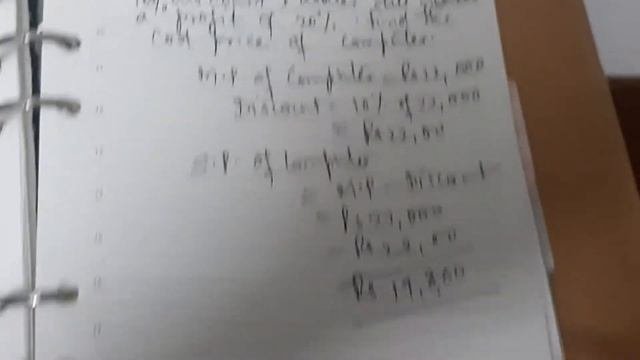 a profit of 20%. Find the
cost price of computer.
M.P of Computer = Rs 22,000
Discount = 10% of 22,000
= Rs 22,00
S.P. of Computer
= M.P - Discount
= Rs 22,000
- Rs 22,00
Rs 19,800